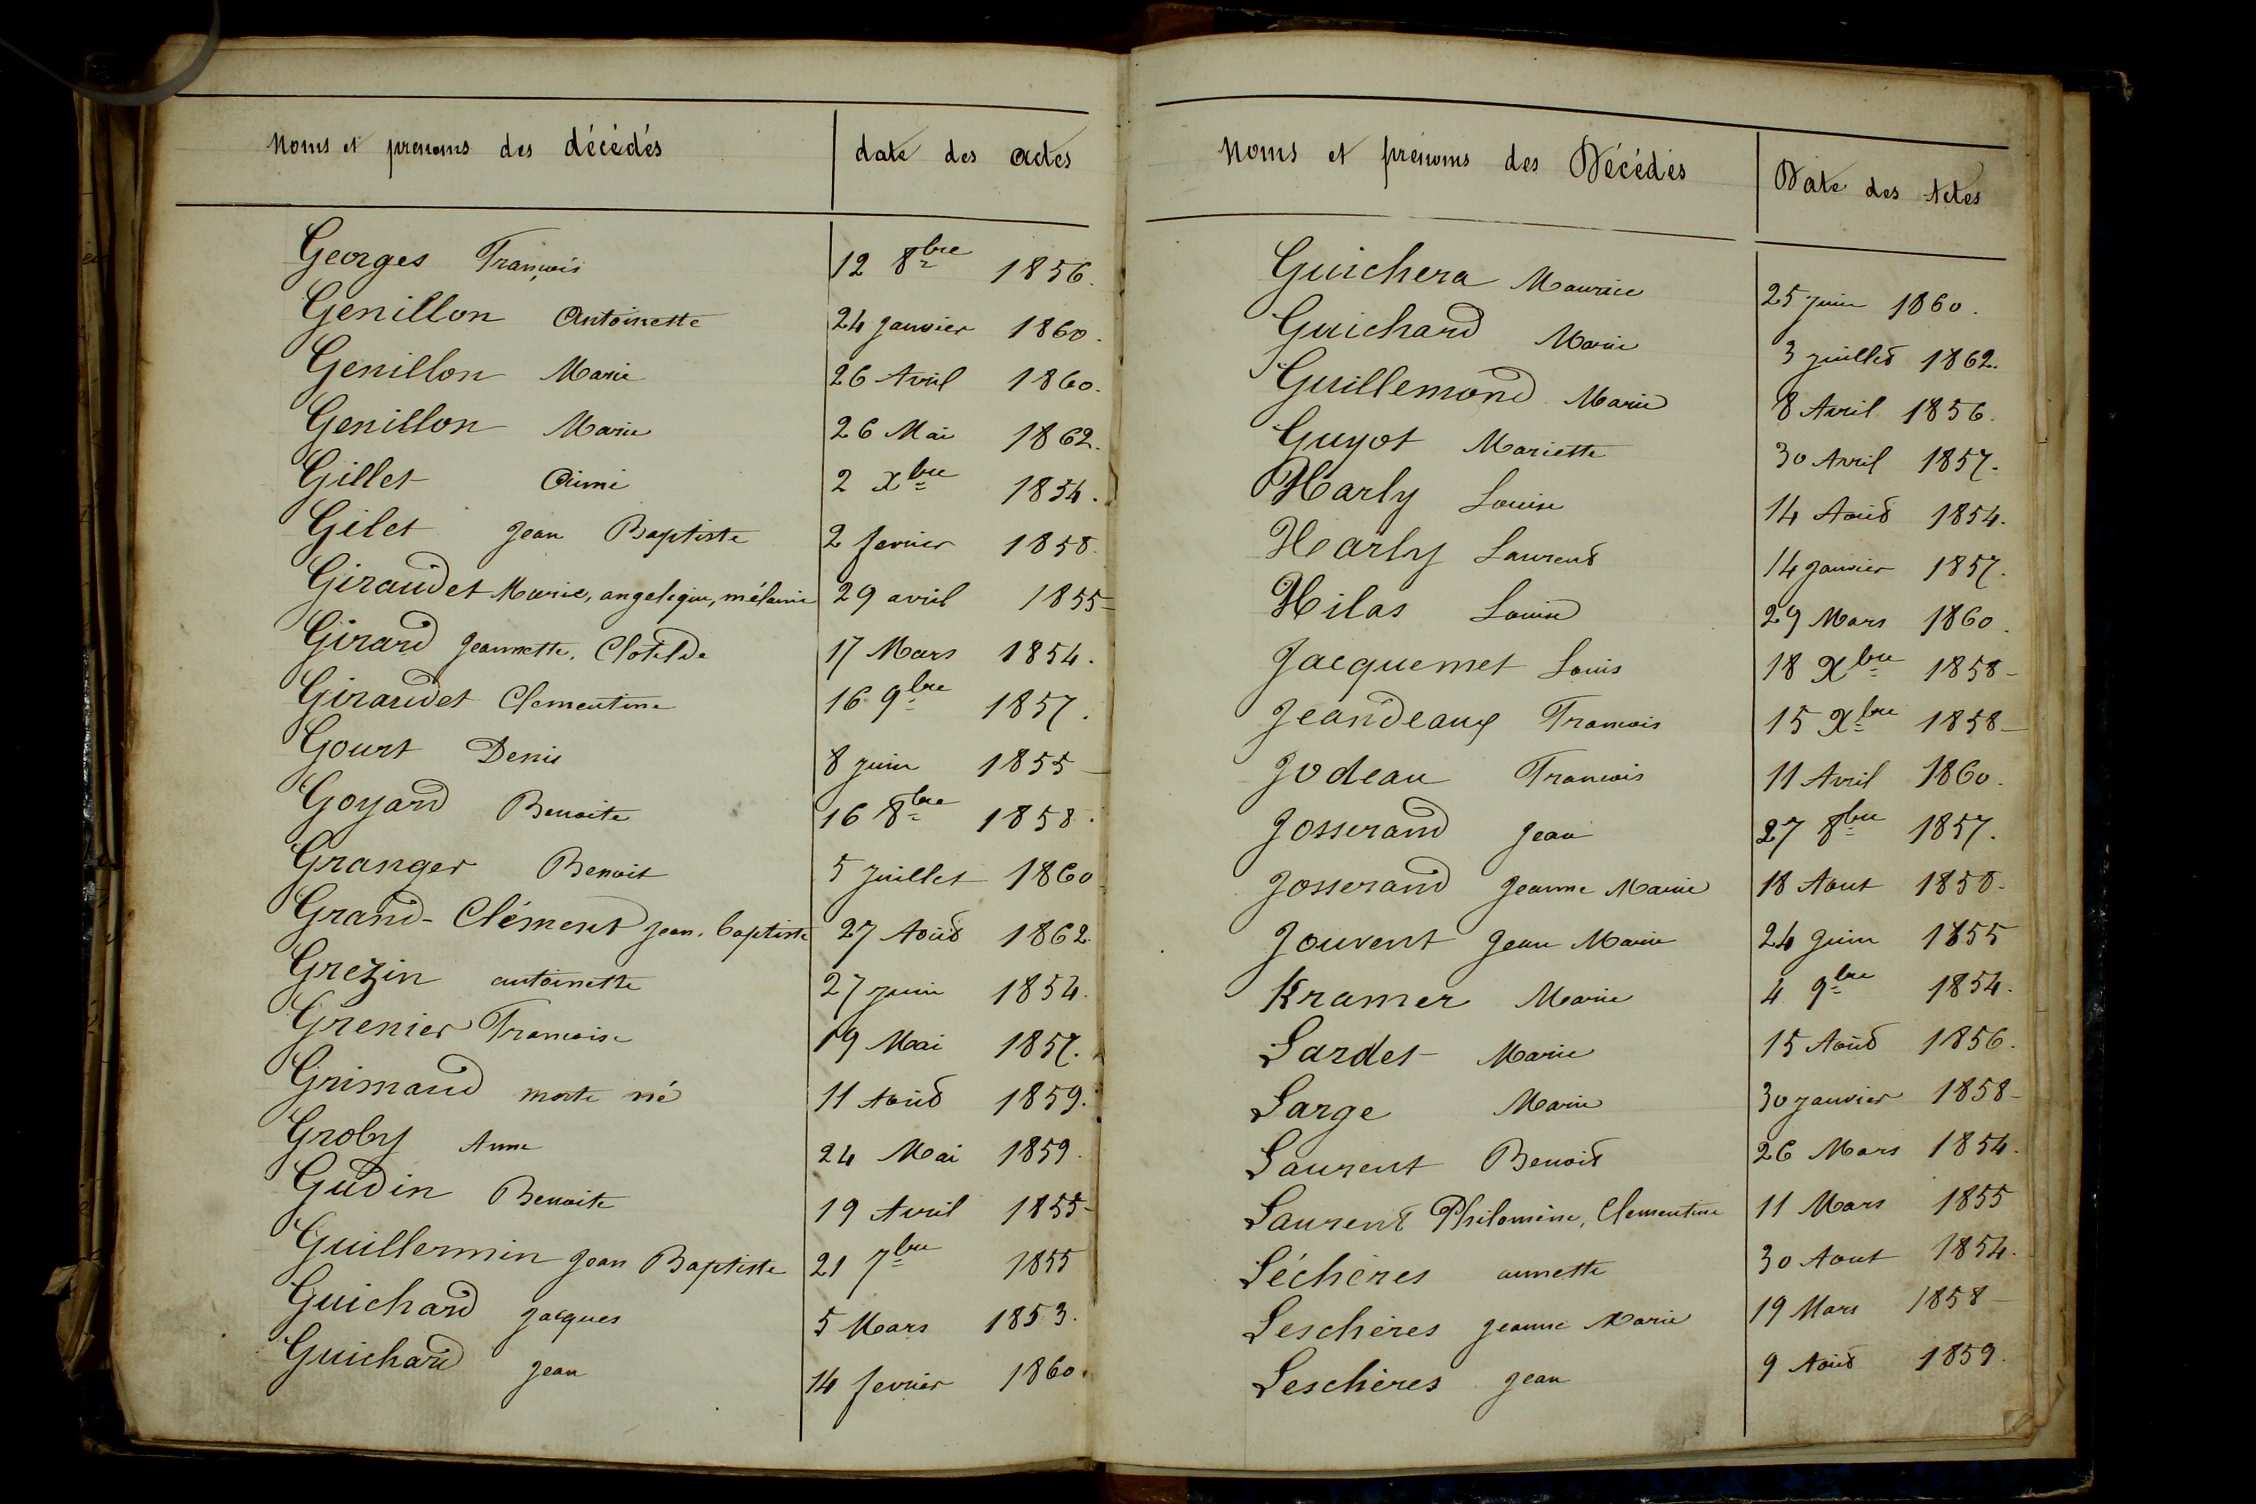 Noms et prenoms des décédés date des actes
Georges François 12 8bre 1856.
Genillon Antoinette 24 janvier 1860.
Genillon Marie 26 Avril 1860.
Genillon Marie 26 Mai 1862.
Gillet Aimé 2 Xbre 1854.
Gilet jean Baptiste 2 fevrier 1858.
Giraudet Marie, angelique, mélanie 29 avril 1855-
Girard jeannette, Clotilde 17 Mars 1854.
Giraudet Clementine 16 9bre 1857.
Gourt Denis 8 juin 1855-
Goyard Benoite 16 8bre 1858.
Granger Benoit 5 juillet 1860
Grand-Clément jean-baptiste 27 Août 1862.
Grezin antoinette 27 juin 1854.
Grenier Francoise 19 Mai 1857.
Grimaud morte né 11 Août 1859.
Groby Anne 24 Mai 1859.
Gudin Benoite 19 Avril 1855-
Guillermin jean Baptiste 21 7bre 1855
Guichard jacques 5 Mars 1853.
Guichard jean 14 fevrier 1860.
Noms et prénoms des Décédés Date des Actes
Guichera Maurice 25 juin 1860.
Guichard Marie 3 juillet 1862.
Guillemond Marie 8 Avril 1856.
Guyot Mariette 30 Avril 1857.
Harly Louise 14 Août 1854.
Harly Laurent 14 janvier 1857.
Hilas Louise 29 Mars 1860.
Jacquemet Louis 18 Xbre 1858-
Jeandeaux Francois 15 Xbre 1858-
Jodeau Francois 11 Avril 1860.
Josserand jean 27 8bre 1857.
Josserand jeanne Marie 18 Aout 1858.
Jouvent jean Marie 24 juin 1855
Kramer Marie 4 9bre 1854.
Lardet Marie 15 Août 1856.
Large Marie 30 janvier 1858-
Laurent Benoit 26 Mars 1854.
Laurent Philomène, Clementine 11 Mars 1855
Léchères annette 30 Aout 1854.
Leschères jeanne Marie 19 Mars 1858-
Leschères jean 9 Août 1859.